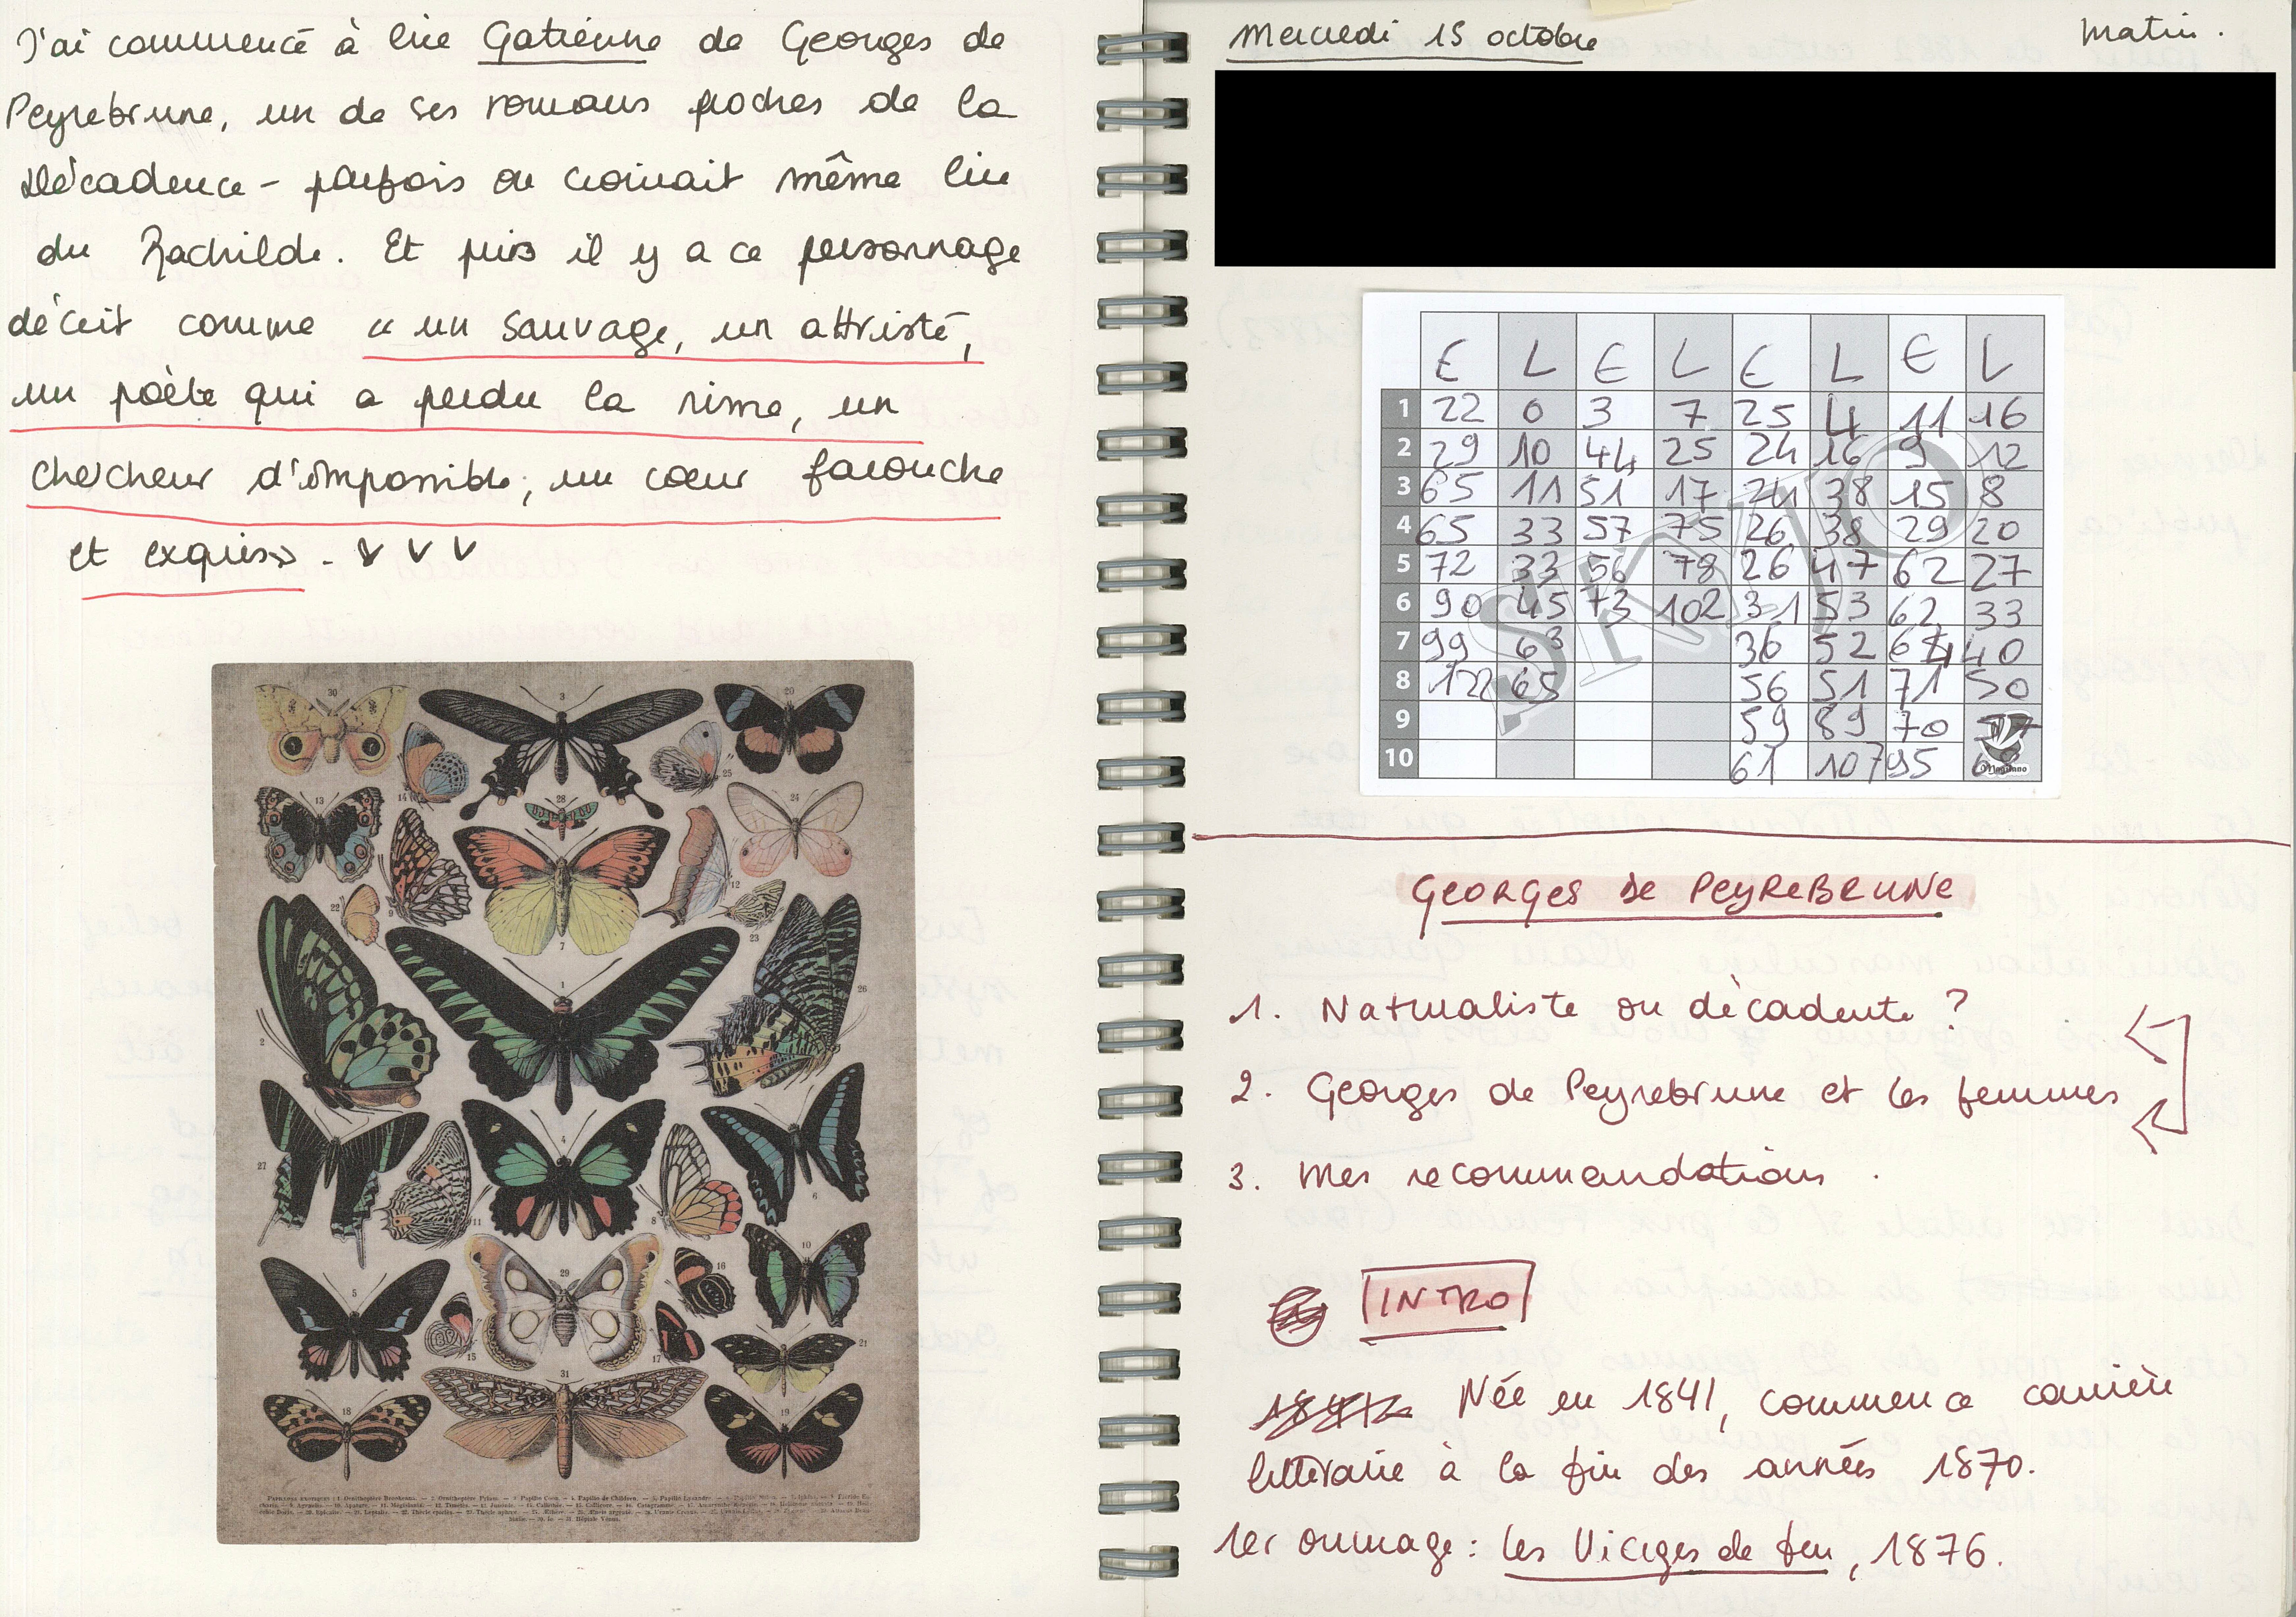 J'ai commencé à lire Gatienne de Georges de
Peyrebrune, un de ses romans proches de la
Décadence - parfois on croirait même lire
du Rachilde. Et puis il y a ce personnage
décrit comme « un sauvage, un attristé,
un poète qui a perdu la rime, un
chercheur d'impossible, un cœur farouche
et exquis ».
30
3
20
14
25
13
28
24
9
12
22
7
23
2
1
26
27
11
4
8
6
5
29
16
10
15
17
21
18
31
19
Mercredi 15 octobre
Matin.
E L E L E L E L
1 22 0 3 7 25 4 11 16
2 29 10 44 25 24 16 9 12
3 65 11 51 17 24 38 15 8
4 65 33 57 75 26 38 29 20
5 72 33 56 78 26 47 62 27
6 90 45 73 102 31 53 62 33
7 99 63 36 52 40
8 122 65 56 51 71 50
9 59 89 70
10 61 107 95
SKYJO
Magilano
GEORGES DE PEYREBRUNE
1. Naturaliste ou décadente ?
2. Georges de Peyrebrune et les femmes
3. Mes recommandations.
INTRO
Née en 1841, commence carrière
littéraire à la fin des années 1870.
1er ouvrage : Les Vierges de feu, 1876.